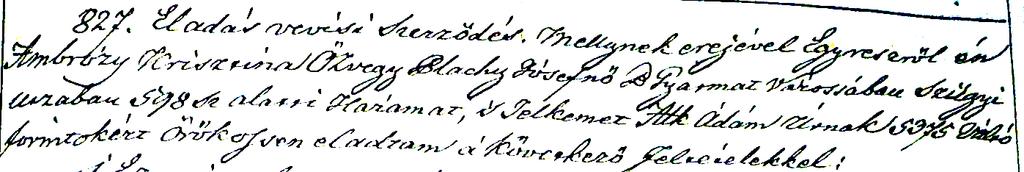 827. Eladás vevési Szerződés. Mellynek erejével Egyreseről én
Ambrózy Krisztina Özvegy Blachy Jósefnő B Gyarmat Várossában Szügyi
uszában 598 sz alatti Házamat, s Telkemet Alt Ádám Úrnak 5375 Váltó
forintokért Örökossen eladtam a következő feltételekkel: